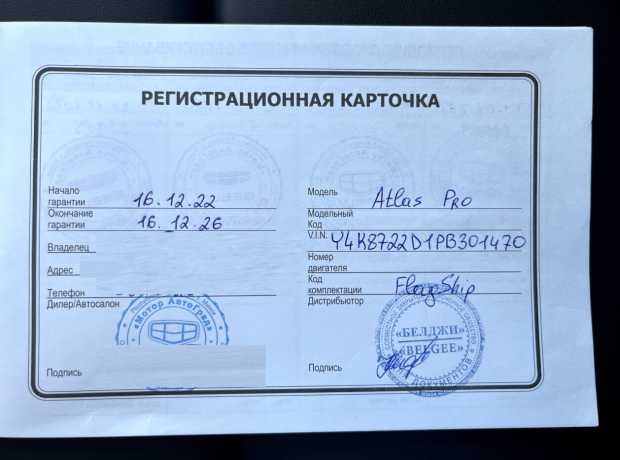 РЕГИСТРАЦИОННАЯ КАРТОЧКА
Начало
гарантии 16.12.22
Окончание
гарантии 16.12.26
Владелец
Адрес
Телефон
Дилер/Автосалон
«Мотор Автоград»
Подпись
Модель Atlas Pro
Модельный
Код
V.I.N. Y4K8722D1PB301470
Номер
двигателя
Код
комплектации FlagShip
Дистрибьютор
«БЕЛДЖИ»
«BELGEE»
ДОКУМЕНТОВ
Подпись